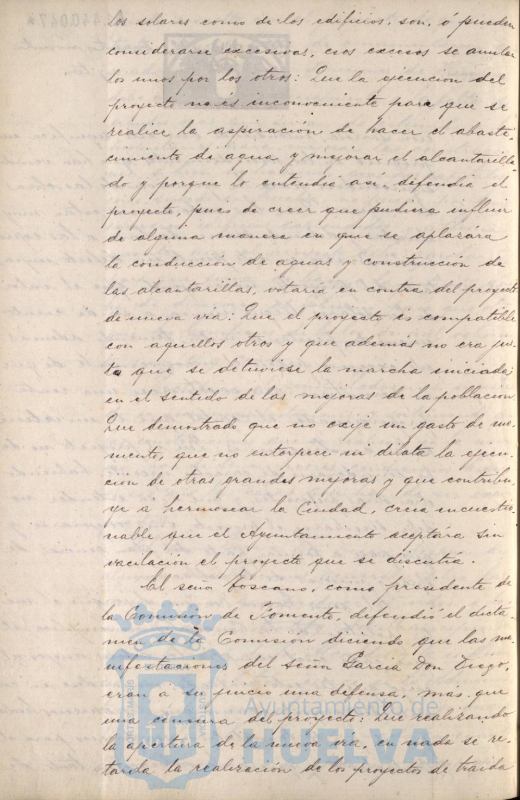 los solares como de los edificios, son, ó pueden
considerarse excesivas, esos excesos se anulan
los unos por los otros: Que la ejecucion del
proyecto no es inconveniente para que se
realice la aspiración de hacer el abaste-
cimiento de agua y mejorar el alcantarilla-
do y porque lo entendia asi, defendia el
proyecto, pués de creer que pudiera influir
de alguna manera en que se aplazára
la conducción de aguas y construcción de
las alcantarillas, votaria en contra del proyecto
de nueva via: Que el proyecto es compatible
con aquellos otros y que ademas no era jus-
ta que se detuviese la marcha iniciada
en el sentido de las mejoras de la población
Que demostrado que no exije un gasto de mo-
mento, que no entorpece ni dilata la ejecu-
cion de otras grandes mejoras y que contribu-
ye a hermosear la Ciudad, creia incuestio-
nable que el Ayuntamiento aceptára sin
vacilación el proyecto que se discutia.
El señor Toscano, como presidente de
la Comisión de Fomento, defendió el dicta-
men de la Comisión diciendo que las ma-
nifestaciones del Señor García Don Diego,
eran a su juicio una defensa, más que
una censura del proyecto: Que realizando
la apertura de la nueva via, en nada se re-
tarda la realización de los proyectos de traida
Ayuntamiento de
HUELVA